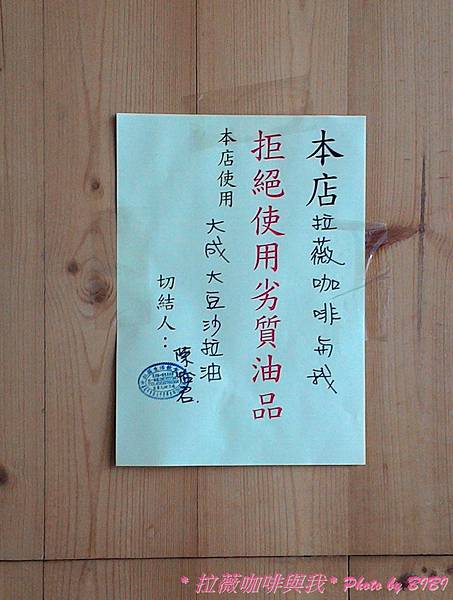 本店拉薇咖啡与我
拒絕使用劣質油品
本店使用 大成大豆沙拉油
切結人：陳
*拉薇咖啡與我* Photo by BIBI